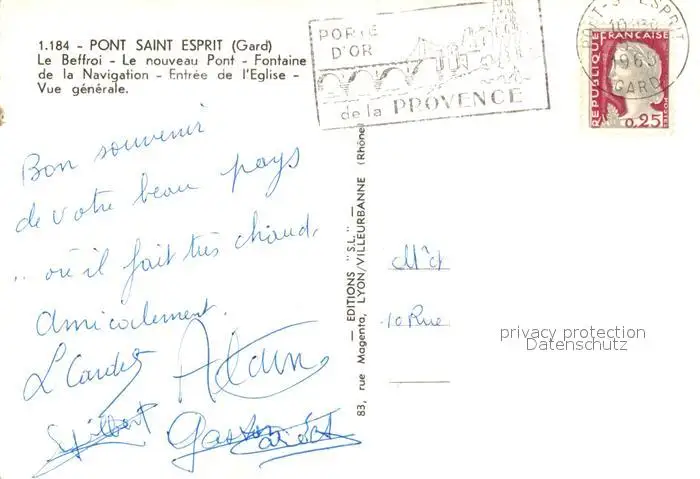 1.184 - PONT SAINT ESPRIT (Gard)
Le Beffroi - Le nouveau Pont - Fontaine
de la Navigation - Entrée de l'Eglise -
Vue générale.
PORTE
D'OR
de la PROVENCE
PONT-ST ESPRIT
1965
GARD
REPUBLIQUE FRANÇAISE
POSTES
0,25
Bon souvenir
de votre beau pays
.. où il fait très chaud.
Amicalement.
Alain
Gaston
— EDITIONS "S.L." —
83, rue Magenta, LYON/VILLEURBANNE (Rhône)
10 Rue
privacy protection
Datenschutz